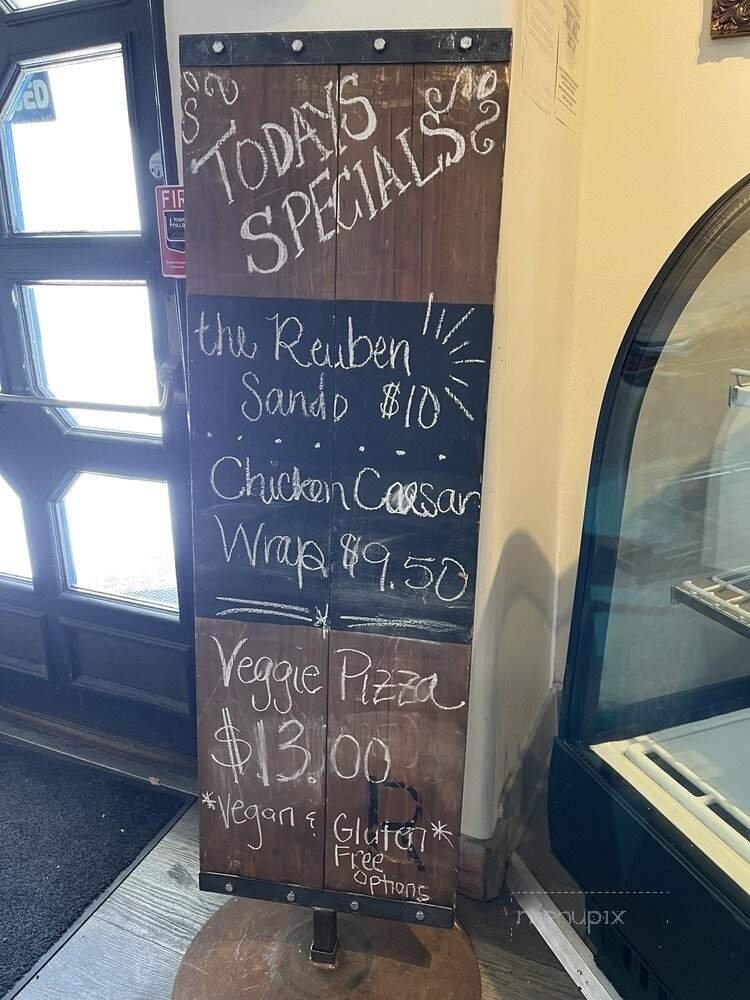 TODAYS
SPECIALS
the Reuben
Sando $10
Chicken Caesar
Wrap $9.50
Veggie Pizza
$13.00
*Vegan &
Gluten*
Free
options
R
FIR
menupix